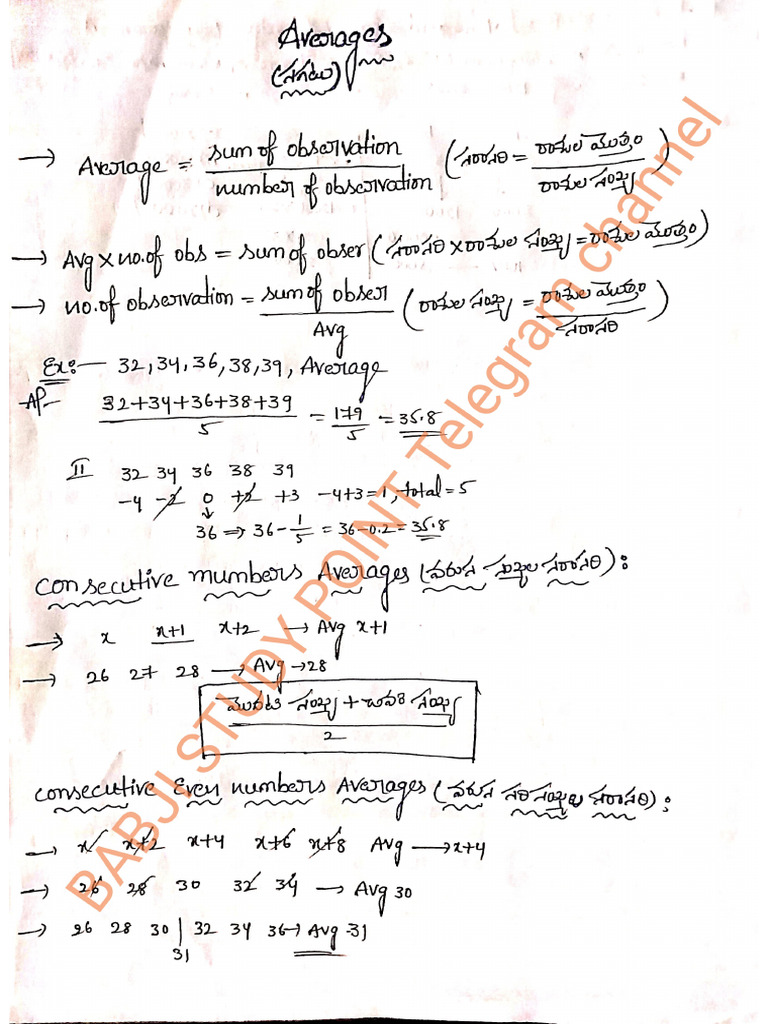 Averages
(సగటు)
→ Average = sum of observation / number of observation (సరాసరి = రాశుల మొత్తం / రాశుల సంఖ్య)
→ Avg × no.of obs = sum of obser (సరాసరి × రాశుల సంఖ్య = రాశుల మొత్తం)
→ no.of observation = sum of obser / Avg (రాశుల సంఖ్య = రాశుల మొత్తం / సరాసరి)
Ex:- 32, 34, 36, 38, 39, Average
32+34+36+38+39 / 5 = 179 / 5 = 35.8
II 32 34 36 38 39
-4 -2 0 +2 +3 -4+3=1, total = 5
↓
36 ⇒ 36 - 1/5 = 36-0.2 = 35.8
consecutive numbers Averages (వరుస సంఖ్యల సరాసరి) :
→ x x+1 x+2 → Avg x+1
→ 26 27 28 → Avg → 28
మొదటి సంఖ్య + చివరి సంఖ్య / 2
consecutive Even numbers Averages (వరుస సరిసంఖ్యల సరాసరి) :
→ x x+2 x+4 x+6 x+8 Avg → x+4
→ 26 28 30 32 34 → Avg 30
→ 26 28 30 | 32 34 36 → Avg 31
31
BABJI STUDY POINT Telegram channel